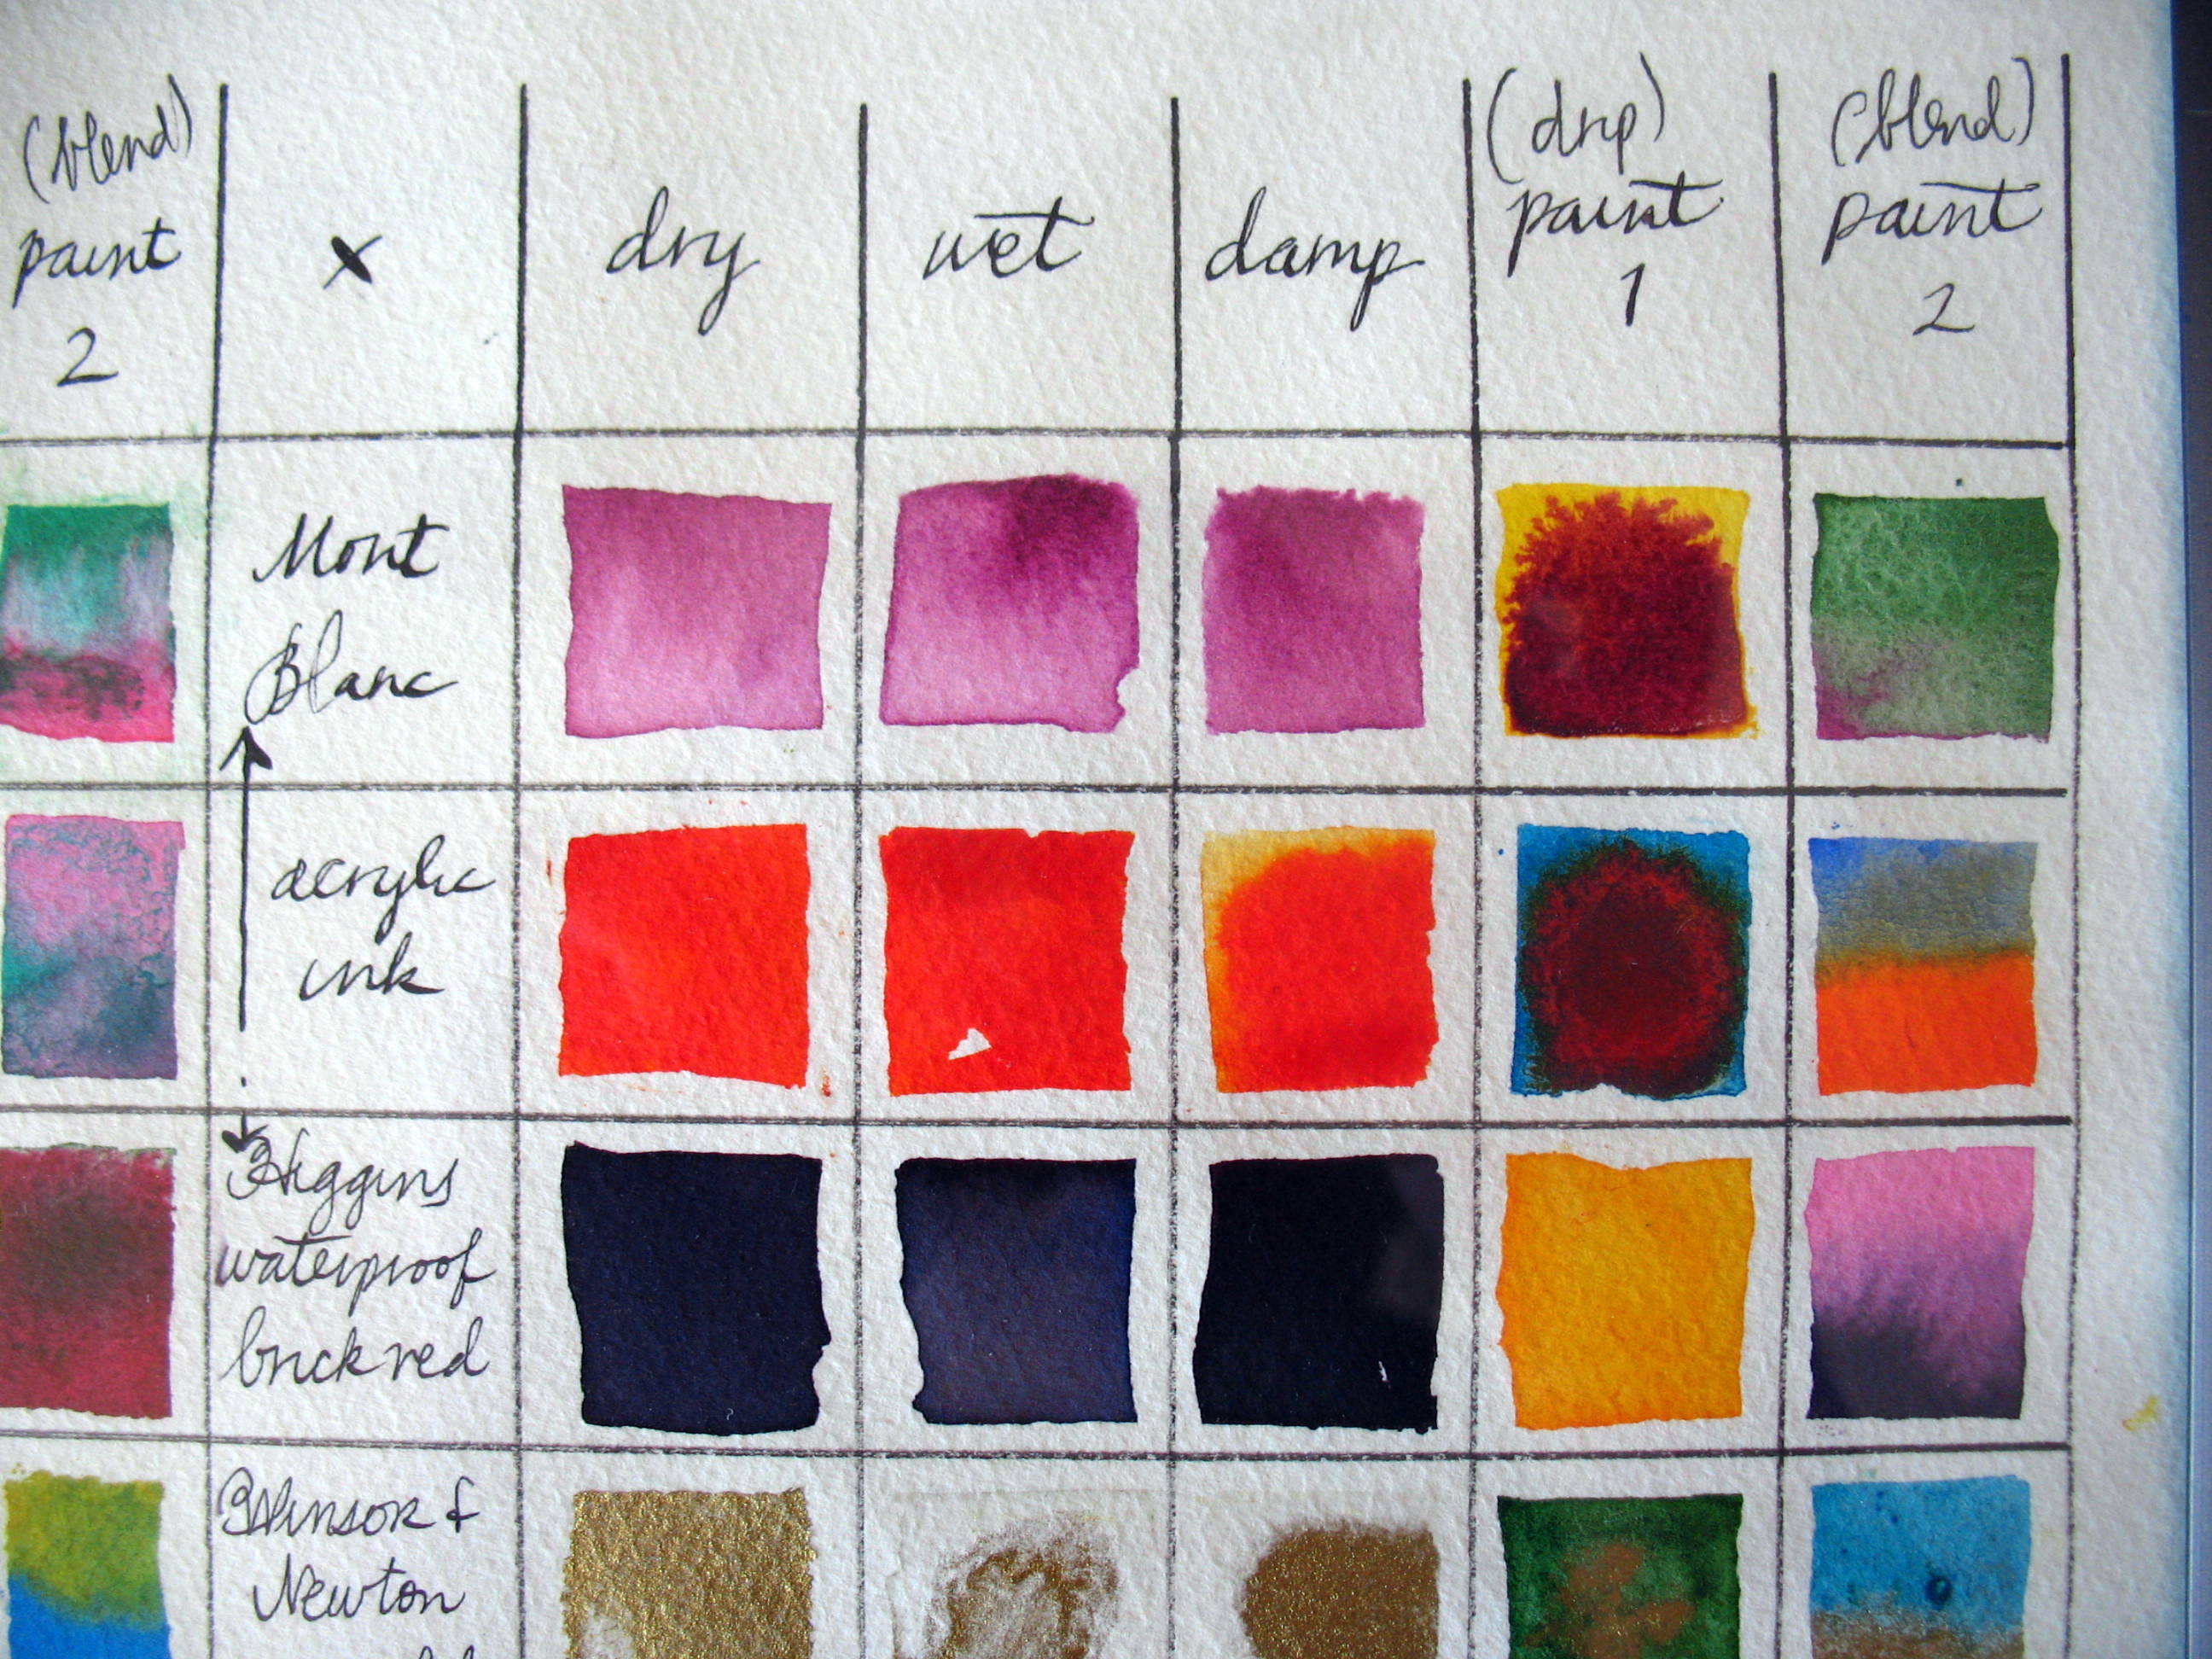 (blend)
paint
2
x
dry
wet
damp
(drip)
paint
1
(blend)
paint
2
Mont
Blanc
acrylic
ink
Higgins
waterproof
brick red
Winsor &
Newton